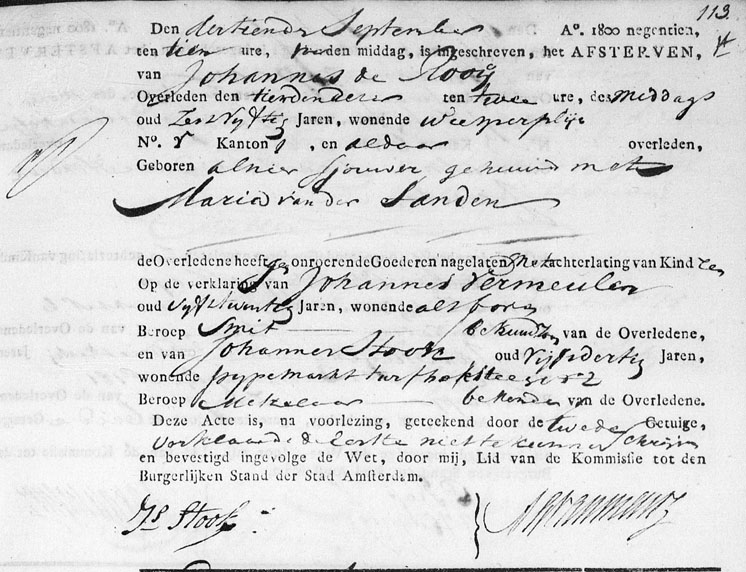 113.
Den dertiende September A°. 1800 negentien,
ten tien ure, voorden middag, is ingeschreven, het AFSTERVEN,
van Johannes de Rooij
Overleden den tienden dezer ten twee ure, des Middags
oud Zes vyftig Jaren, wonende weesperplijn
N°. Kanton , en aldaar overleden,
Geboren alhier sjouwer gehuwd met
Maria van der Landen
de Overledene heeft geen onroerende Goederen nagelaten met achterlating van Kind
Op de verklaring van Johannes Vermeulen
oud vyf twintig Jaren, wonende als boven
Beroep Smit bekende van de Overledene,
en van Johannes Stook oud vyf dertig Jaren,
wonende pypemarkt turfbaksteeg
Beroep Metzelaar bekende van de Overledene.
Deze Acte is, na voorlezing, geteekend door de twede Getuige,
verklaarde de Eerste niet te kunnen Schrijven
en bevestigd ingevolge de Wet, door mij, Lid van de Kommissie tot den
Burgerlijken Stand der Stad Amsterdam.
Js Stook